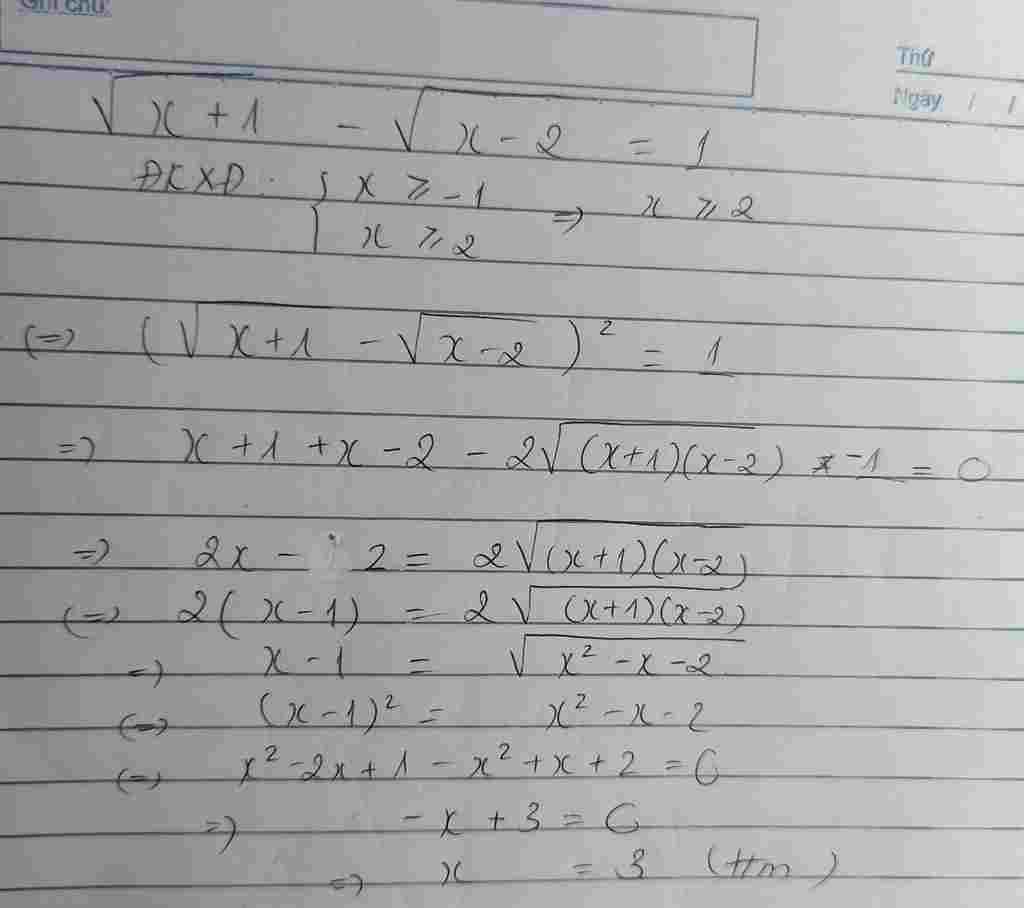 Ghi chú:
Thứ
Ngày / /
√(x+1) - √(x-2) = 1
ĐKXĐ: { x ≥ -1
{ x ≥ 2 => x ≥ 2
(=) (√(x+1) - √(x-2))² = 1
=) x+1+x-2-2√((x+1)(x-2)) -1 = 0
=) 2x - 2 = 2√((x+1)(x-2))
(=) 2(x-1) = 2√((x+1)(x-2))
=) x-1 = √(x²-x-2)
(=) (x-1)² = x²-x-2
(=) x²-2x+1-x²+x+2 = 0
=) -x+3 = 0
=) x = 3 (ttm)